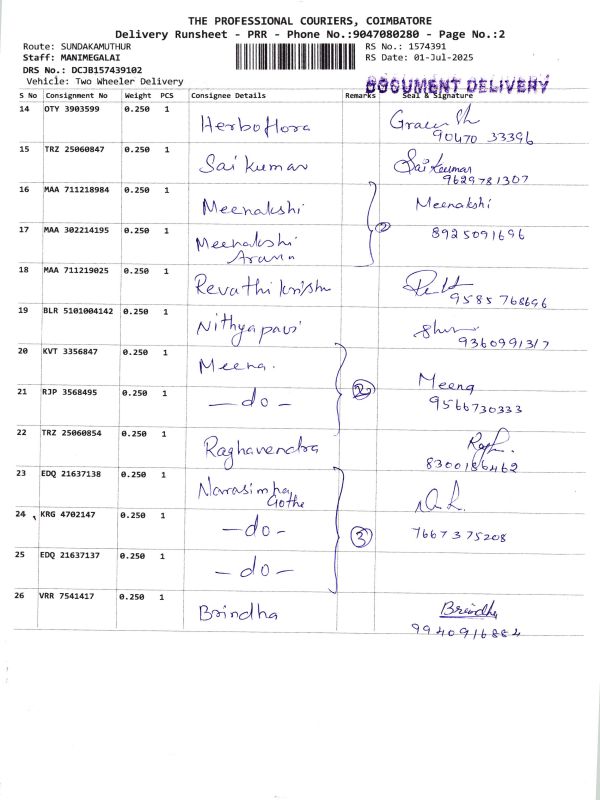 THE PROFESSIONAL COURIERS, COIMBATORE
Delivery Runsheet - PRR - Phone No.:9047080280 - Page No.:2
Route: SUNDAKAMUTHUR RS No.: 1574391
Staff: MANIMEGALAI RS Date: 01-Jul-2025
DRS No.: DCJB157439102
Vehicle: Two Wheeler Delivery
DOCUMENT DELIVERY
S No Consignment No Weight PCS Consignee Details Remarks Seal & Signature
14 OTY 3903599 0.250 1 Herboflora
90470 33396
15 TRZ 25060847 0.250 1 Sai kumar Sai Kumar
9629781307
16 MAA 711218984 0.250 1 Meenakshi Meenakshi
17 MAA 302214195 0.250 1 Meenakshi 2 8925091696
18 MAA 711219025 0.250 1 Revathi krishn
9585768696
19 BLR 5101004142 0.250 1 Nithyapavi
9360991317
20 KVT 3356847 0.250 1 Meena. Meena
21 RJP 3568495 0.250 1 — do — 2 9566730333
22 TRZ 25060854 0.250 1 Raghavendra
8300186462
23 EDQ 21637138 0.250 1 Narasimha
Gothe
24 KRG 4702147 0.250 1 — do — 3 7667375208
25 EDQ 21637137 0.250 1 — do —
26 VRR 7541417 0.250 1 Brindha Brindha
9940916884